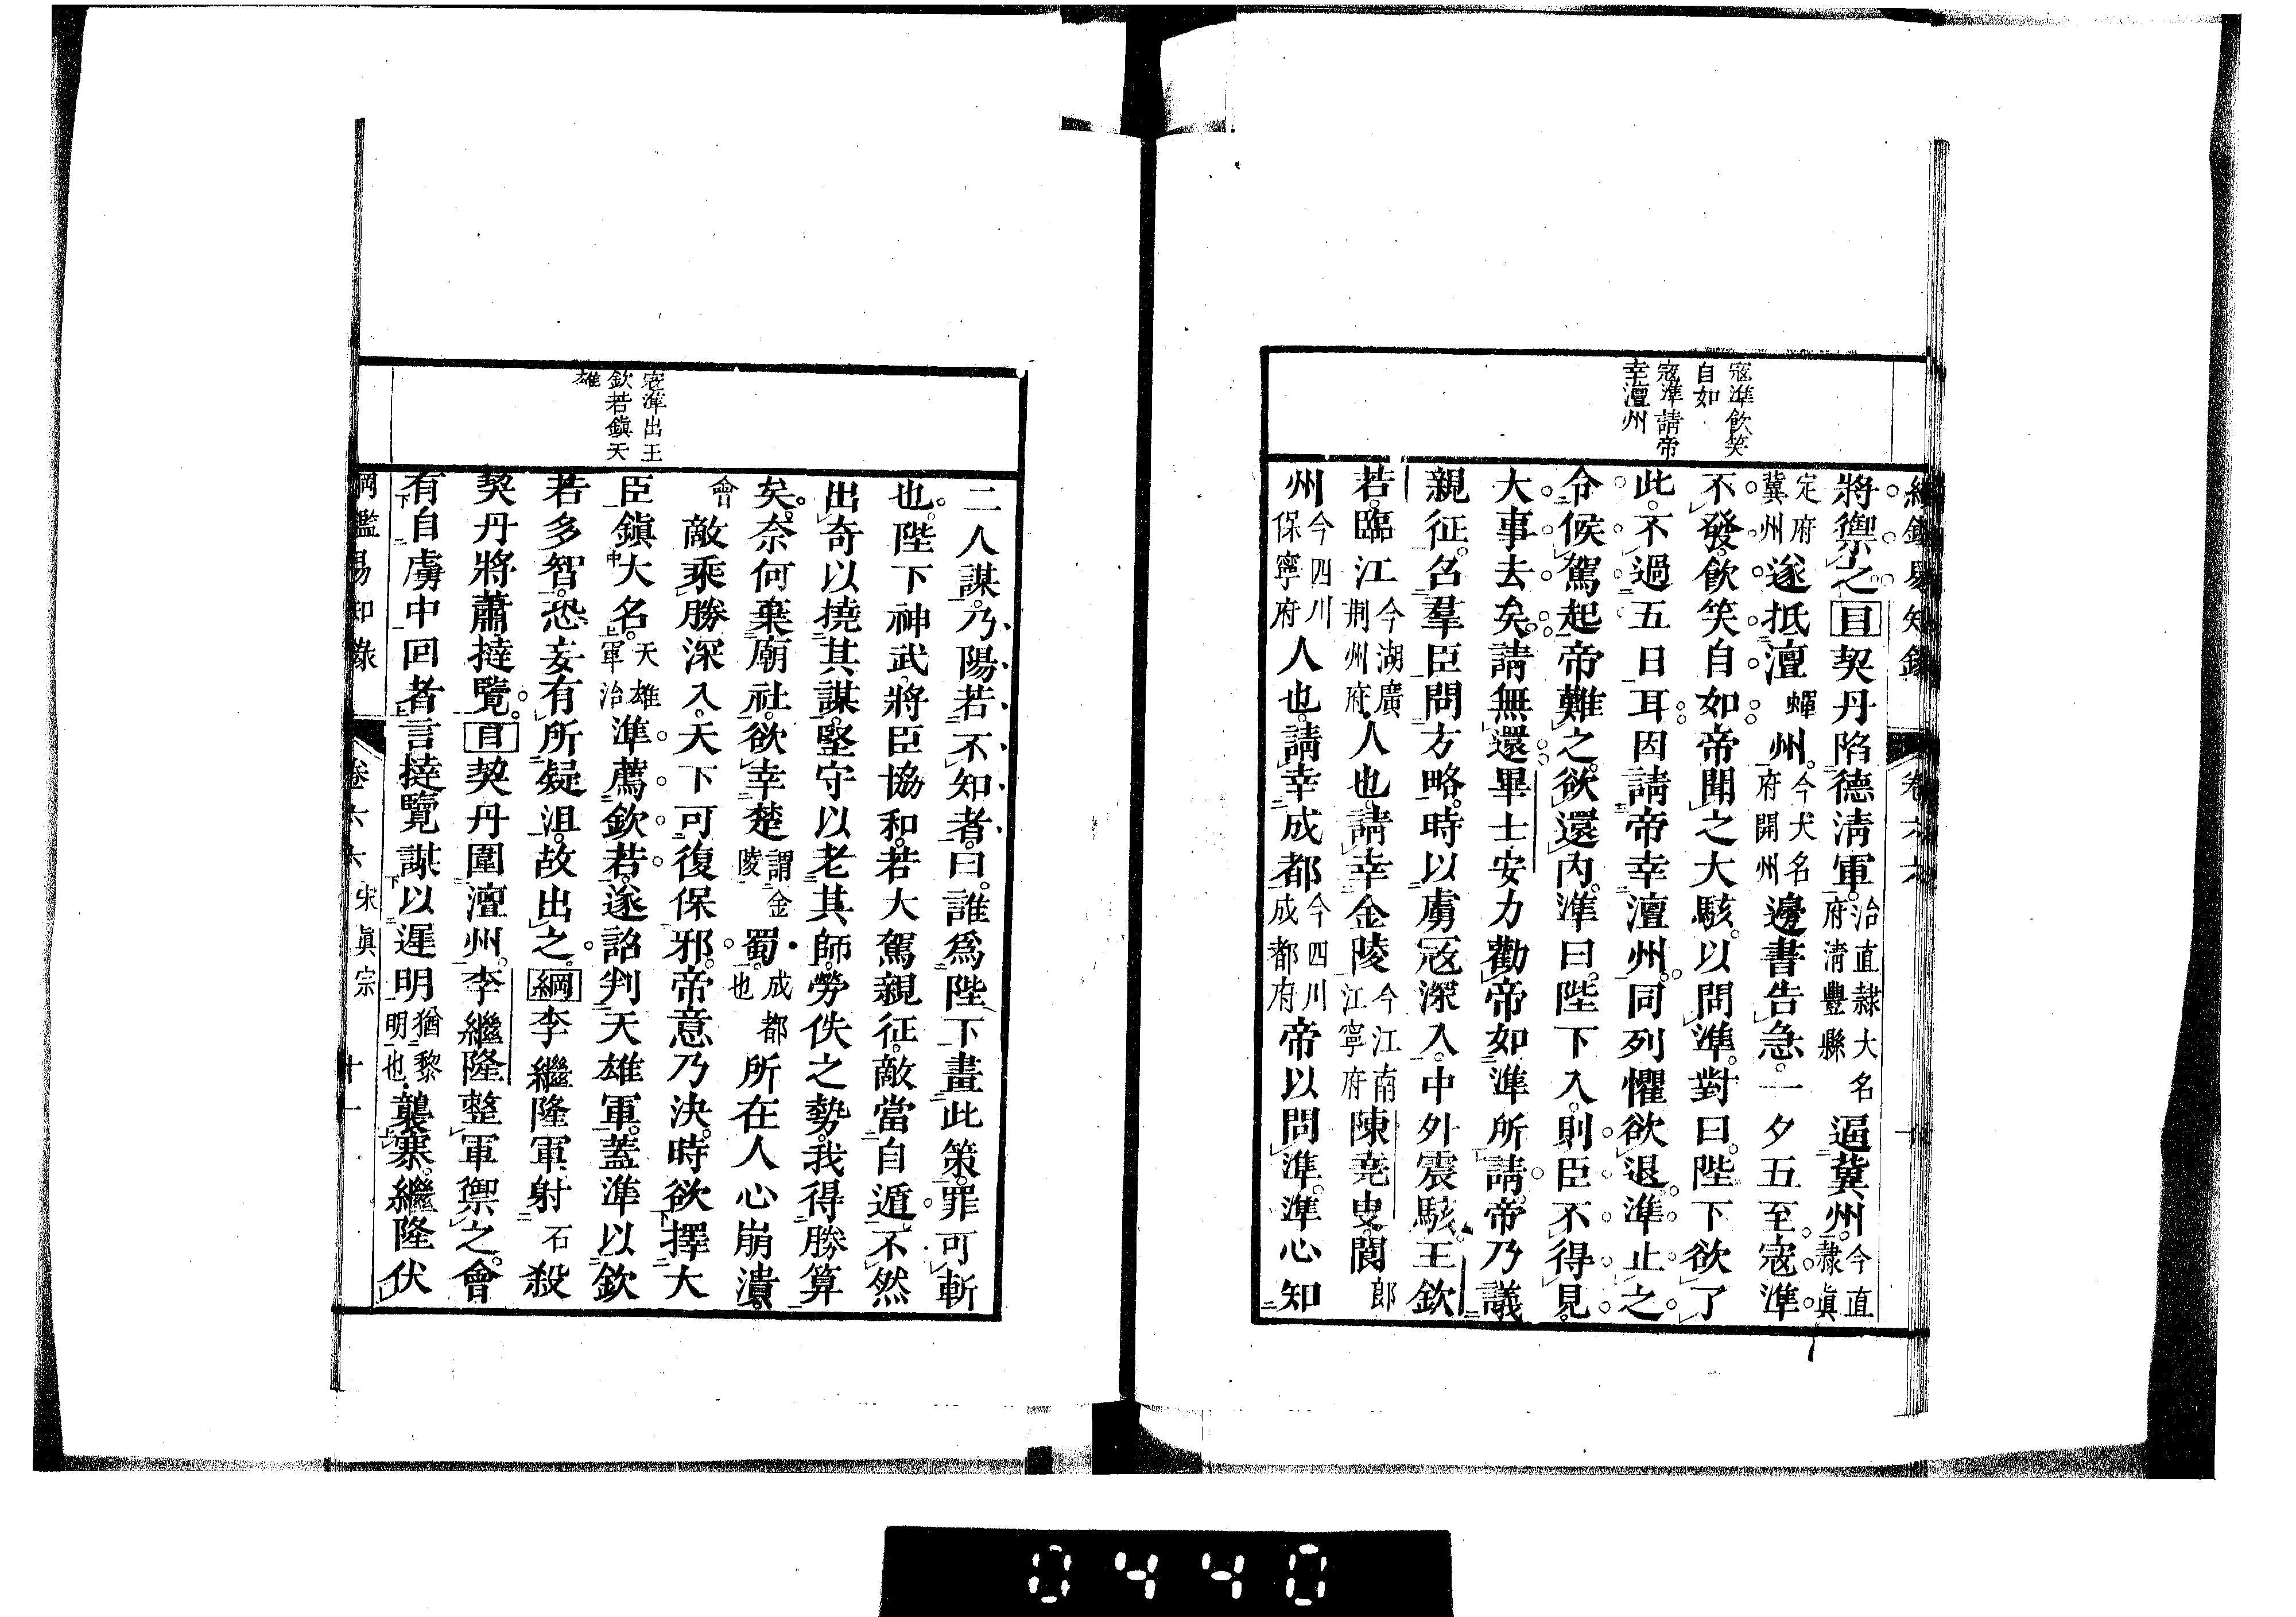 綱鑑易知錄 卷六六 十
寇準飮笑
自如
寇準請帝
幸澶州
將禦之目契丹陷德淸軍。治直隷大名府淸豐縣逼冀州。今直隷眞
定府冀州遂抵澶蟬州。今大名府開州邊書吿急。一夕五至。寇準
不發。飮笑自如。帝聞之大駭。以問準。對曰。陛下欲了
此。不過五日耳。因請帝幸澶州。同列懼欲退。準止之
令候駕起。帝難之。欲還內。準曰。陛下入。則臣不得見。
大事去矣。請無還。畢士安力勸帝如準所請。帝乃議
親征。召羣臣問方略。時以虜寇深入。中外震駭。王欽
若。臨江今湖廣荆州府人也。請幸金陵今江南江寧府陳堯叟。閬郎
州今四川保寧府人也。請幸成都今四川成都府帝以問準。準心知
寇準出王
欽若鎭天
雄
二人謀。乃陽若不知者。曰。誰爲陛下畫此策。罪可斬
也。陛下神武。將臣協和。若大駕親征。敵當自遁。不然
出奇以撓其謀。堅守以老其師。勞佚之勢。我得勝算
矣。奈何棄廟社。欲幸楚謂金陵蜀。成都也所在人心崩潰。
會敵乘勝深入。天下可復保邪。帝意乃決。時欲擇大
臣鎭大名。天雄軍治準薦欽若。遂詔判天雄軍。蓋準以欽
若多智。恐妄有所疑沮。故出之。綱李繼隆軍射石殺
契丹將蕭撻覽。目契丹圍澶州。李繼隆整軍禦之。會
有自虜中回者。言撻覽謀以遲明猶黎明也。襲寨。繼隆伏
綱鑑易知錄 卷六六 宋眞宗 十一
0440